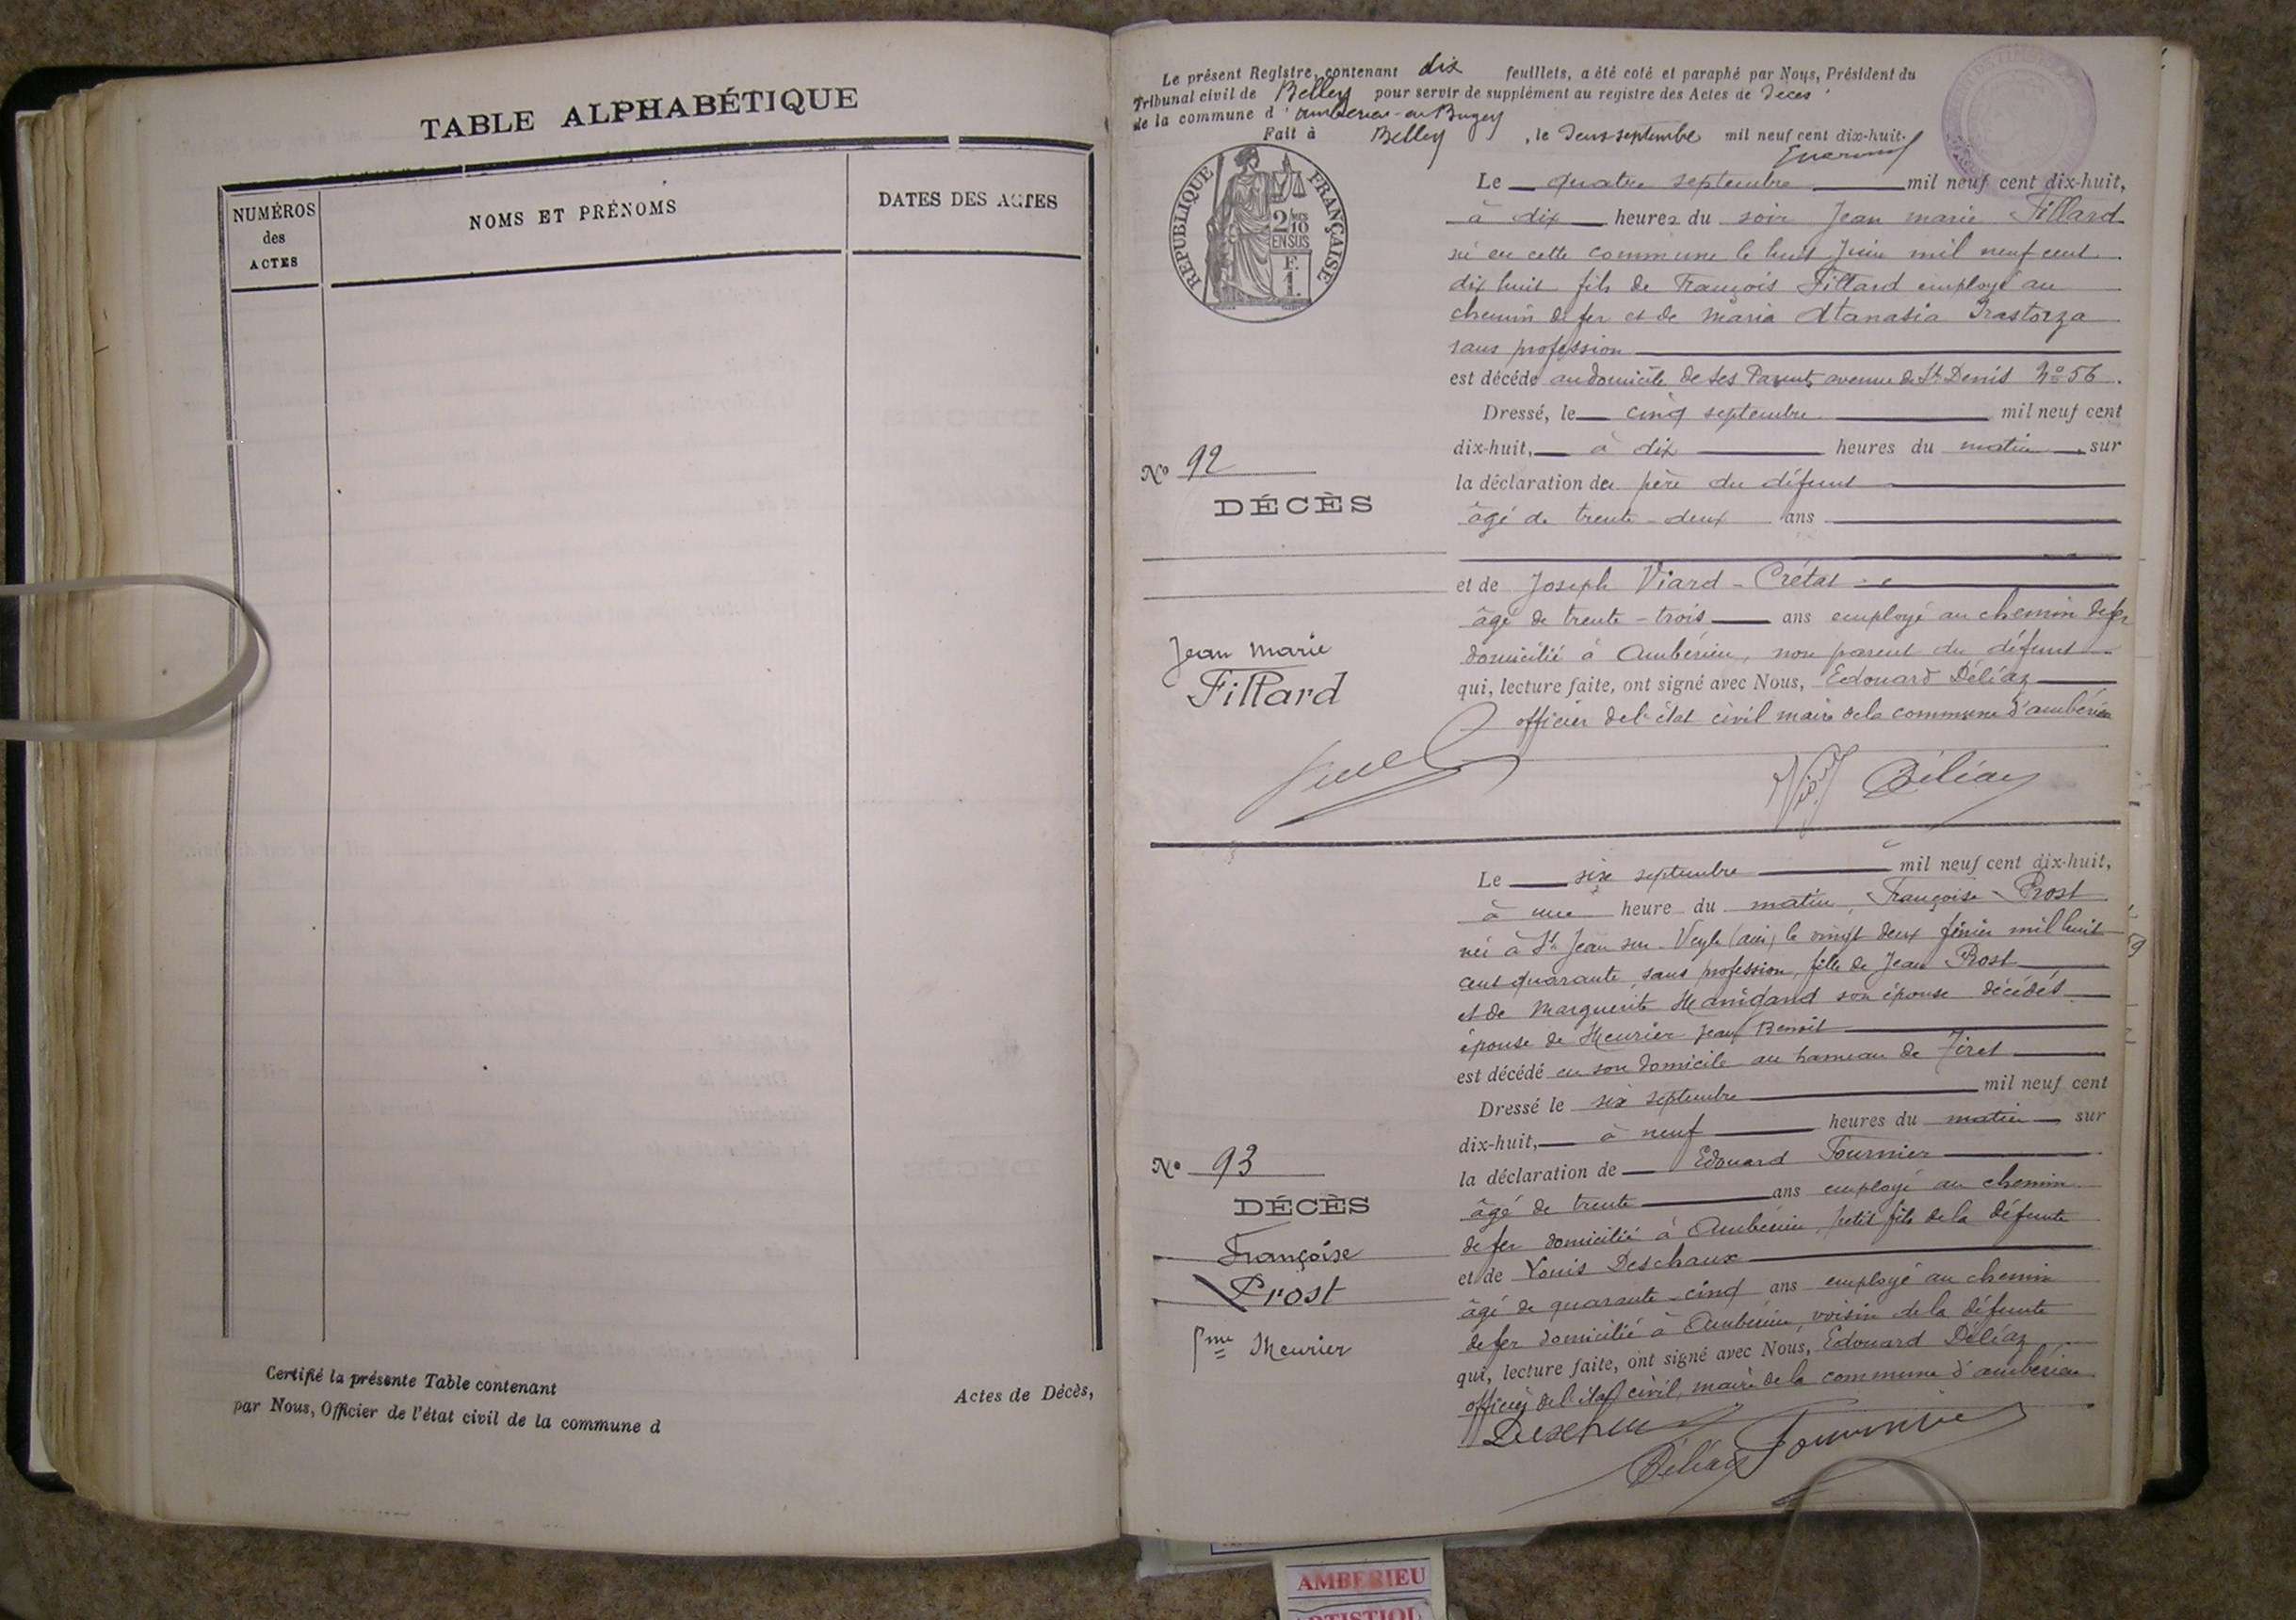 TABLE ALPHABÉTIQUE
NUMÉROS
des
ACTES
NOMS ET PRÉNOMS
DATES DES ACTES
Certifié la présente Table contenant
Actes de Décès,
par Nous, Officier de l'état civil de la commune d
Le présent Registre, contenant dix feuillets, a été coté et paraphé par Nous, Président du
Tribunal civil de Belley pour servir de supplément au registre des Actes de Décès
de la commune d'Ambérieu-en-Bugey
Fait à Belley, le Deux septembre mil neuf cent dix-huit.
RÉPUBLIQUE FRANÇAISE
2/10
EN SUS
F.
1.
Le quatre septembre mil neuf cent dix-huit,
à dix heures du soir Jean marie Fillard
né en cette commune le huit Juin mil neuf cent
dix huit fils de François Fillard employé au
chemin de fer et de Maria Atanasia Irastorza
sans profession
est décédé au domicile de ses Parents avenue de St Denis No 56.
Dressé, le cinq septembre mil neuf cent
dix-huit, à dix heures du matin, sur
la déclaration du père du défunt
âgé de trente-deux ans
et de Joseph Viard-Crétat
âgé de trente-trois ans employé au chemin de fer
domicilié à Ambérieu, non parent du défunt
qui, lecture faite, ont signé avec Nous, Edouard Déléaz
officier de l'état civil maire de la commune d'ambérieu
No 92
DÉCÈS
Jean Marie
Fillard
Viard Déléaz
Le six septembre mil neuf cent dix-huit,
à une heure du matin, Françoise Prost
née à St Jean sur-Veyle (ain) le vingt deux février mil huit
cent quarante, sans profession, fille de Jean Prost
et de Marguerite Manigand son épouse décédés
épouse de Meurier Jean Benoit
est décédé en son domicile au hameau de Tiret
Dressé le six septembre mil neuf cent
dix-huit, à neuf heures du matin sur
la déclaration de Edouard Fournier
âgé de trente ans employé au chemin
de fer domicilié à Ambérieu, petit fils de la défunte
et de Louis Deschaux
âgé de quarante-cinq ans employé au chemin
de fer domicilié à Ambérieu, voisin de la défunte
qui, lecture faite, ont signé avec Nous, Edouard Déléaz
officier de l'état civil, maire de la commune d'ambérieu
No 93
DÉCÈS
Françoise
Prost
fme Meurier
Deschaux
Déléaz Fournier
AMBERIEU